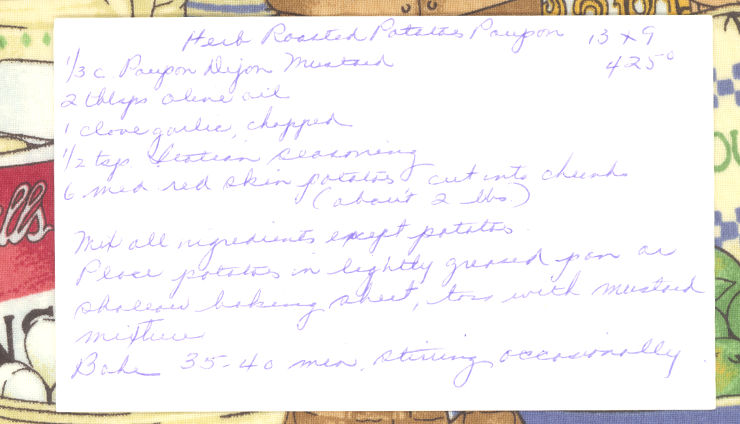 Herb Roasted Potatoes Poupon 13 x 9
1/3 c Poupon Dijon Mustard 425°
2 tblsps olive oil
1 clove garlic, chopped
1/2 tsp Italian seasoning
6 med red skin potatoes cut into chunks
(about 2 lbs)
Mix all ingredients except potatoes.
Place potatoes in lightly greased pan or
shallow baking sheet, toss with mustard
mixture
Bake 35-40 min. stirring occasionally
lls